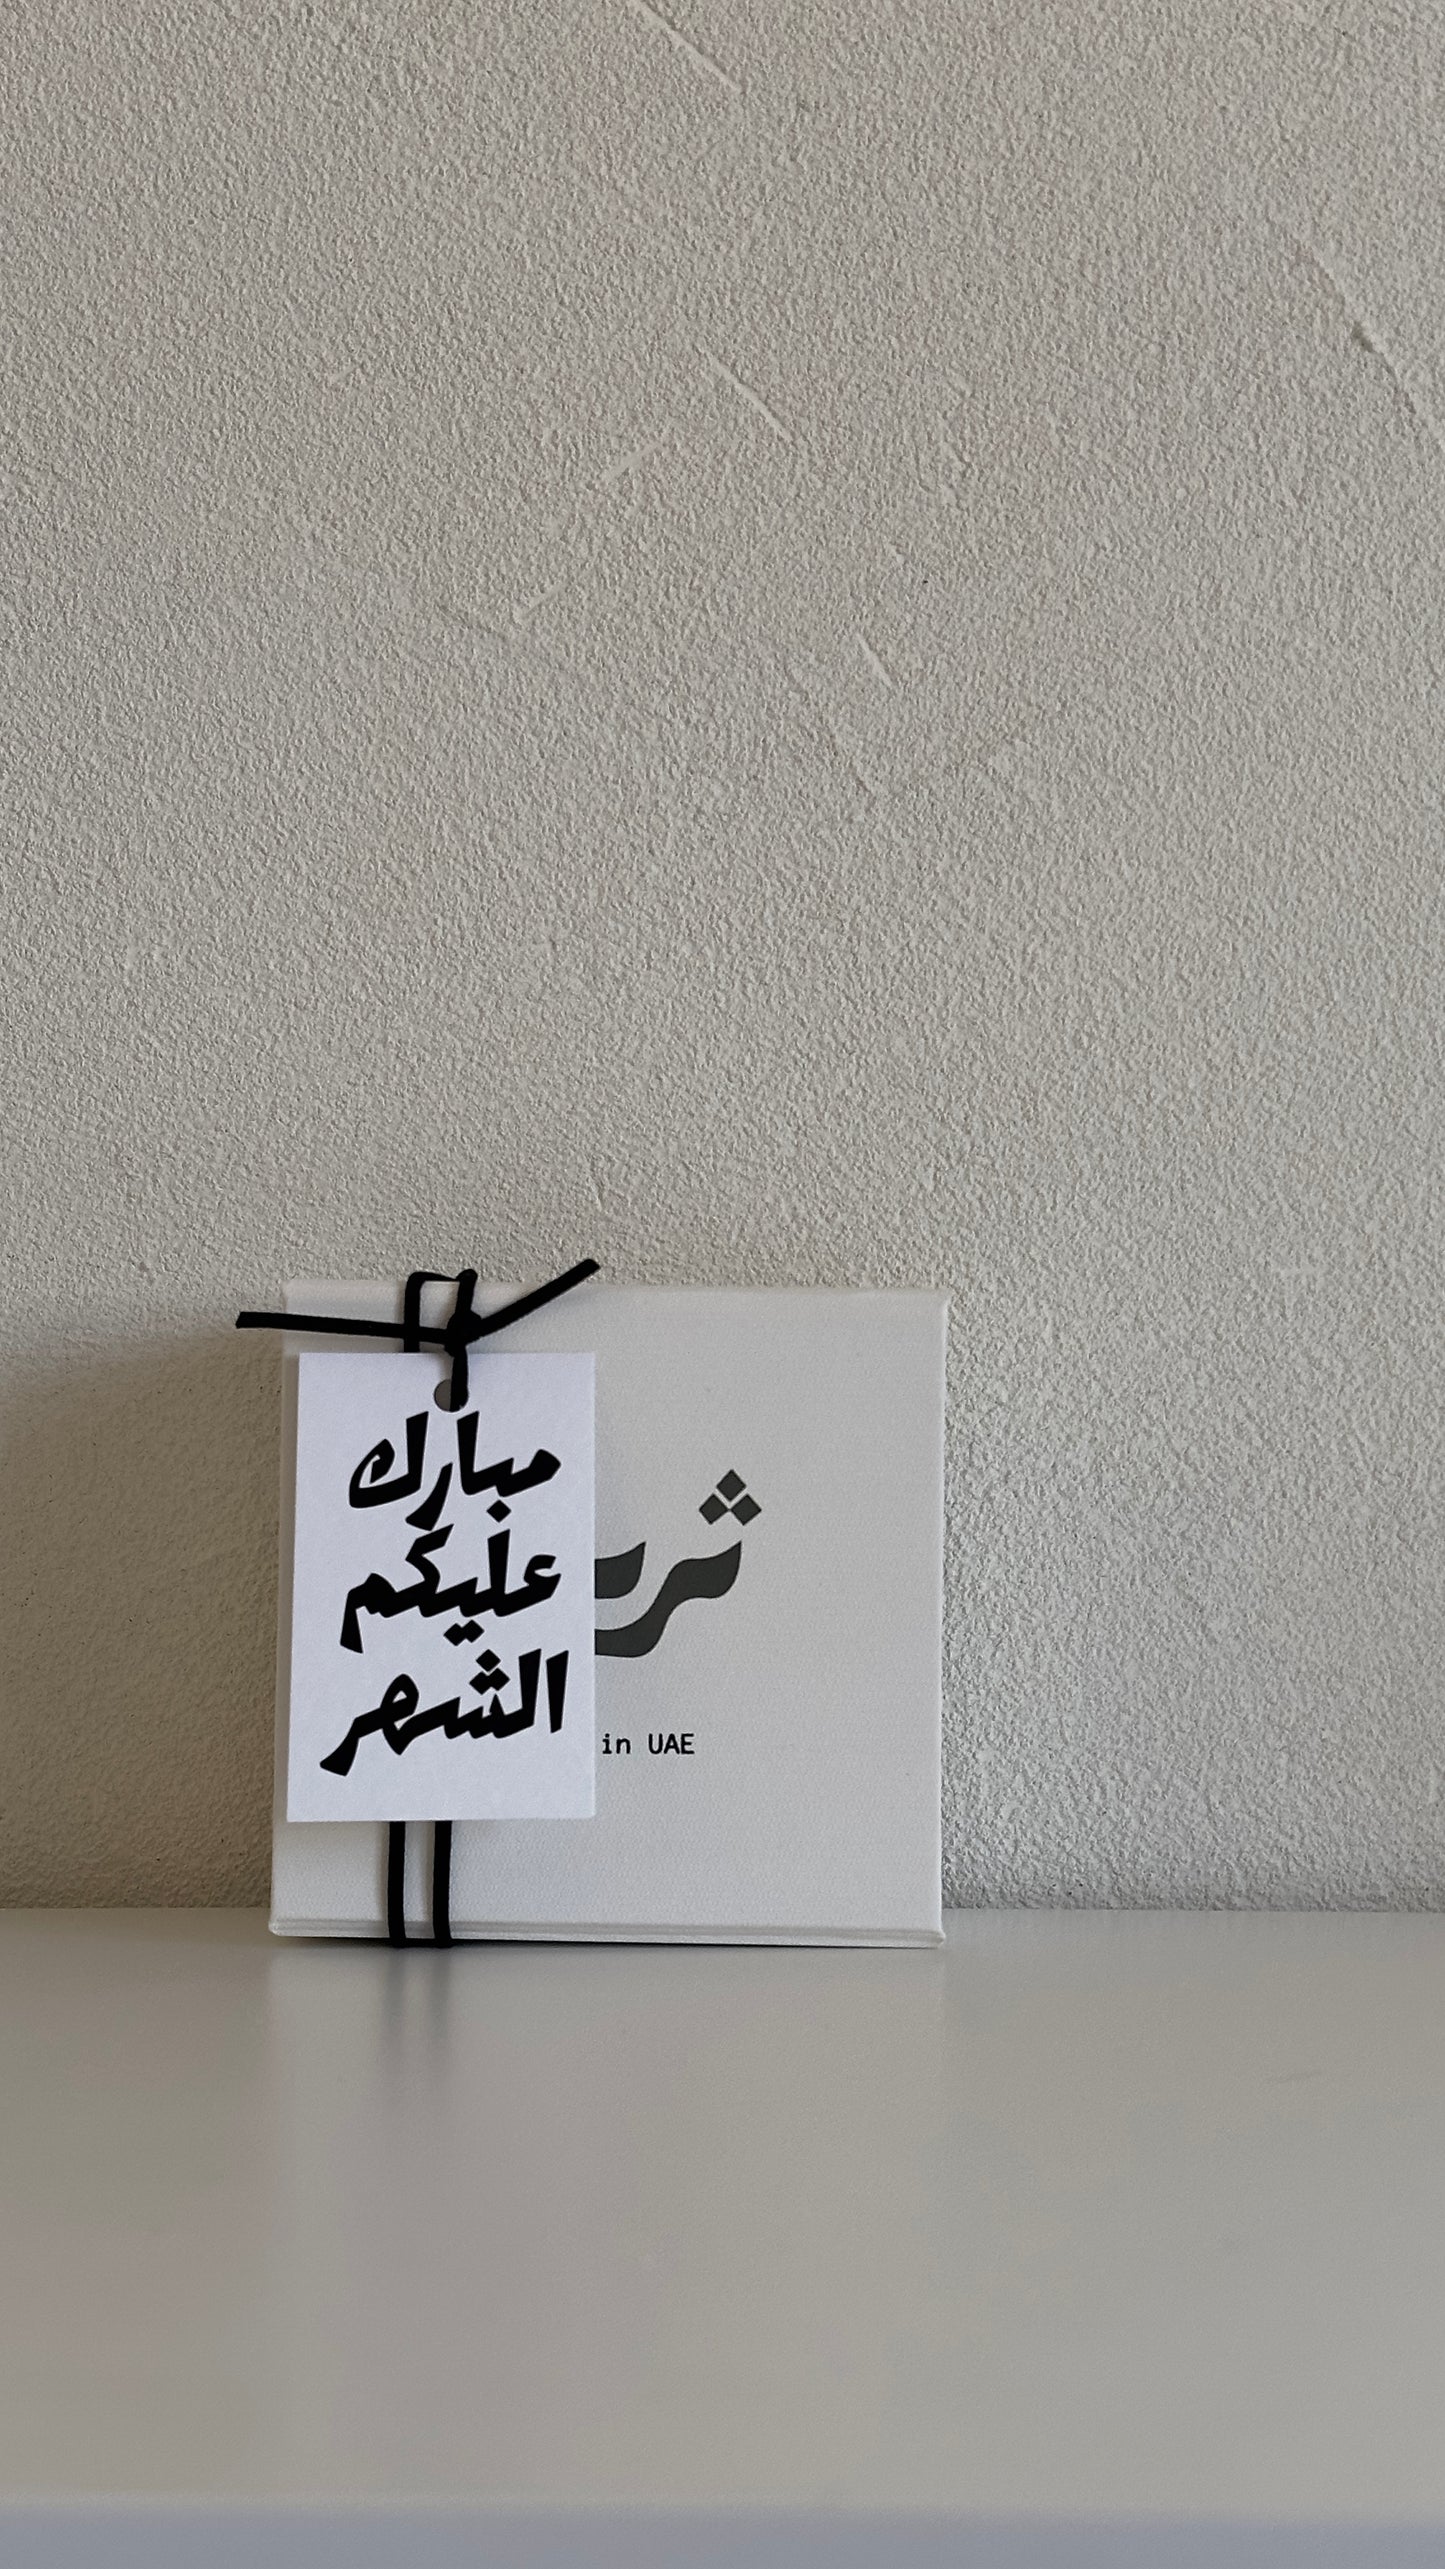 مبارك
عليكم
الشهر
in UAE